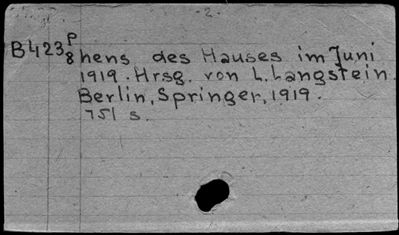 - 2 -
B423 P/8 hens des Hauses im Juni
1919. Hrsg. von L. Langstein.
Berlin, Springer, 1919.
751 s.